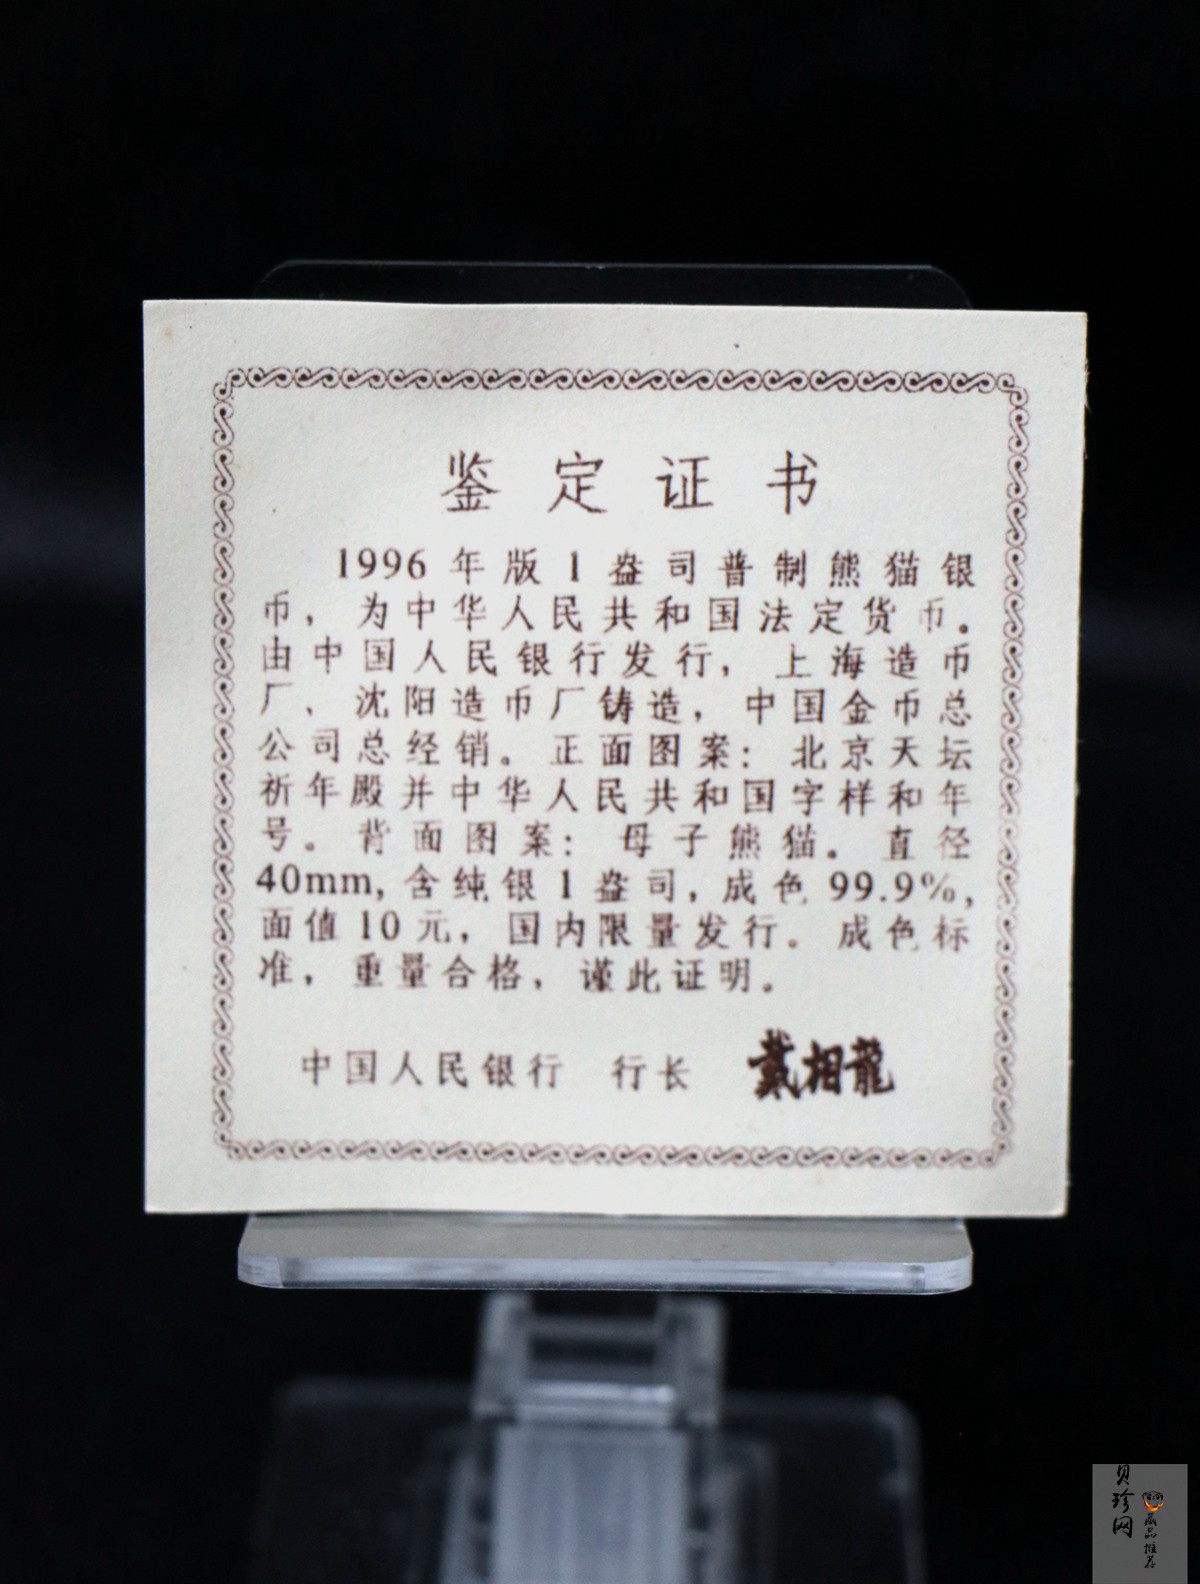 鉴定证书
1996年版1盎司普制熊猫银
币，为中华人民共和国法定货币。
由中国人民银行发行，上海造币
厂、沈阳造币厂铸造，中国金币总
公司总经销。正面图案：北京天坛
祈年殿并中华人民共和国字样和年
号。背面图案：母子熊猫。直径
40mm，含纯银1盎司，成色99.9%，
面值10元，国内限量发行。成色标
准，重量合格，谨此证明。
中国人民银行 行长 戴相龍
贝珍网
藏品推荐